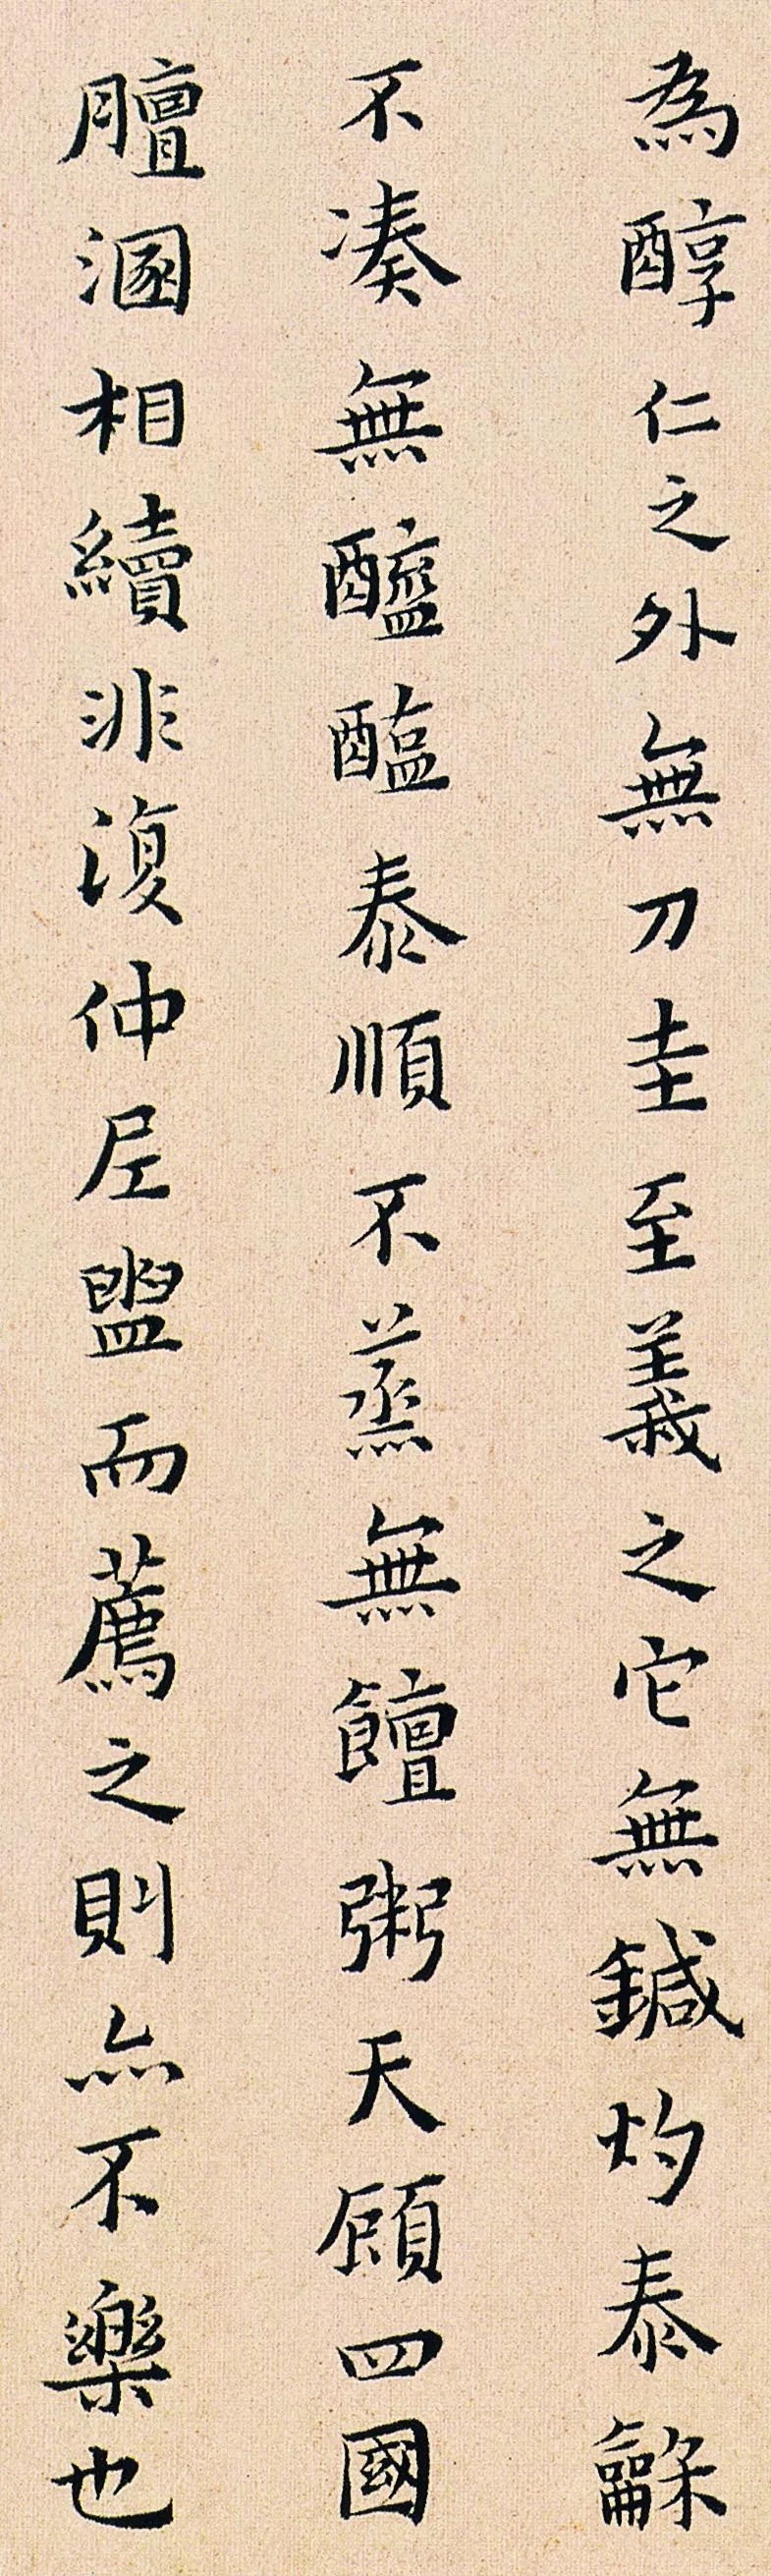 為醇仁之外無刀圭至義之它無鍼灼泰龢
不湊無醯醢泰順不蒸無饘粥天顧四國
膻溷相續非復仲尼盥而薦之則亦不樂也